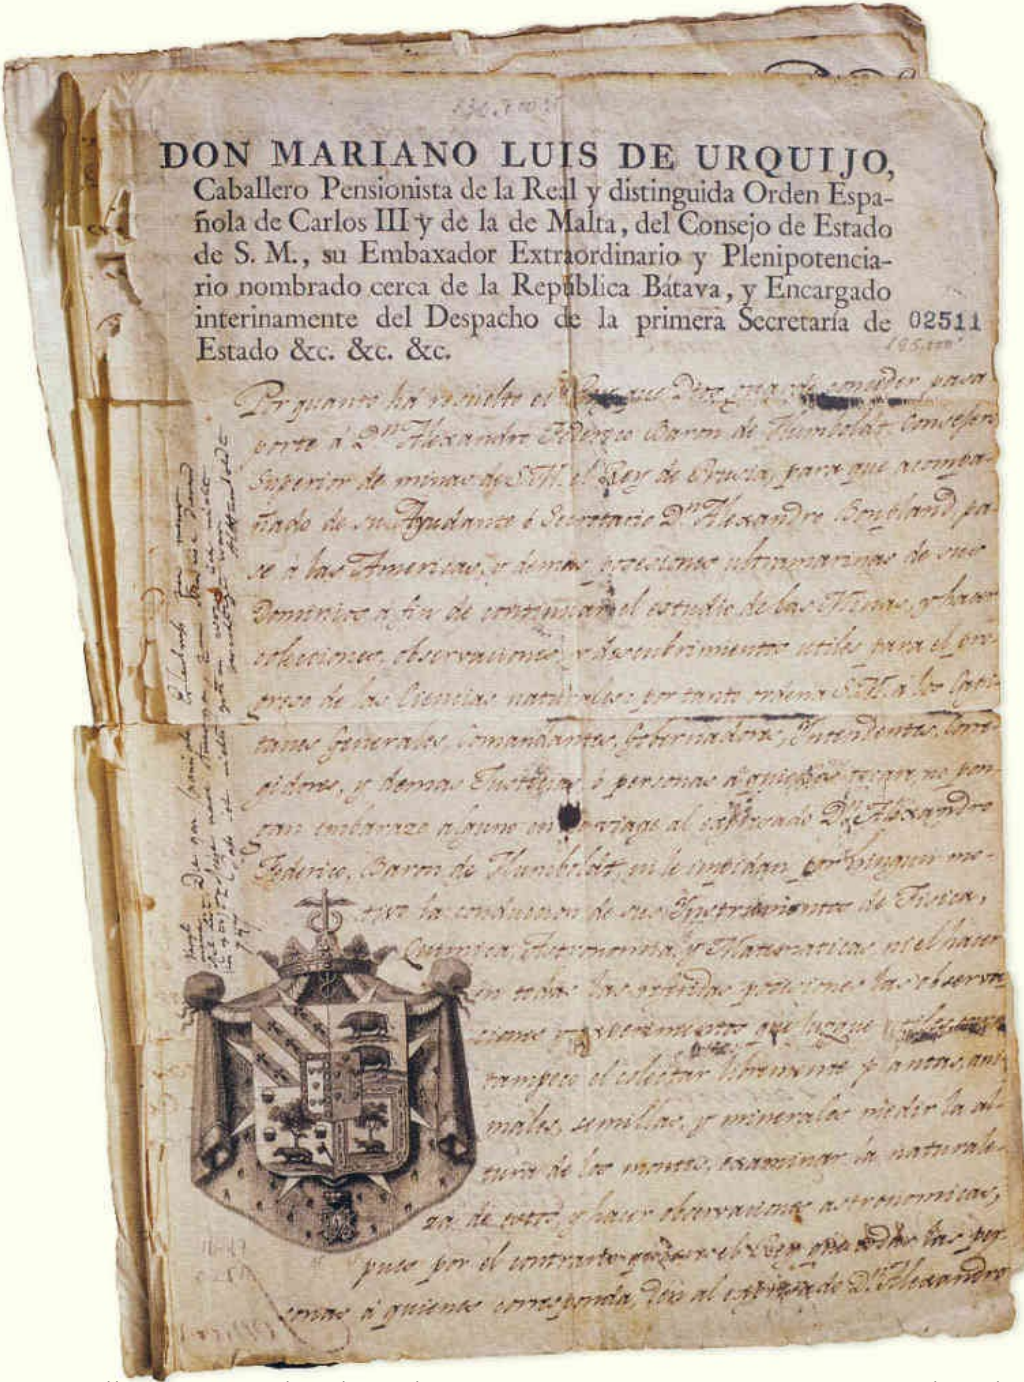 DON MARIANO LUIS DE URQUIJO,
Caballero Pensionista de la Real y distinguida Orden Espa-
ñola de Carlos III y de la de Malta, del Consejo de Estado
de S. M., su Embaxador Extraordinario y Plenipotencia-
rio nombrado cerca de la República Bátava, y Encargado
interinamente del Despacho de la primera Secretaría de 02511
Estado &c. &c. &c.
Por quanto ha resuelto el Rey que Dios guarde conceder pasa
porte á Dn. Alexandro Federico Baron de Humboldt, Consejero
Superior de minas de S.M. el Rey de Prusia, para que acompa-
ñado de su Ayudante ó Secretario Dn. Alexandro Bonpland, pa-
se á las Americas, y demas posesiones ultramarinas de sus
Dominios a fin de continuar el estudio de las Minas, y hacer
colecciones, observaciones, y descubrimientos utiles para el pro-
greso de las Ciencias naturales: por tanto ordena S.M. á los Capi-
tanes Generales, Comandantes, Gobernadores, Yntendentes, Corre-
gidores, y demas Justicias ó personas á quienes tocare, no pon-
gan embarazo alguno en su viage al expresado Dn. Alexandro
Federico, Baron de Humboldt, ni le impidan por ningun mo-
tivo la conduccion de sus Ynstrumentos de Fisica,
Quimica, Astronomia, y Matematicas, ni el hacer
en todas las referidas posesiones las observa
ciones y experimentos que juzgue utiles, como
tampoco el colectar libremente plantas, ani-
males, semillas, y minerales, medir la al-
tura de los montes, examinar la naturale-
za de estos, y hacer observaciones astronomicas,
pues por el contrario quiere el Rey que todas las per
sonas á quienes corresponda, den al expresado Dn. Alexandro